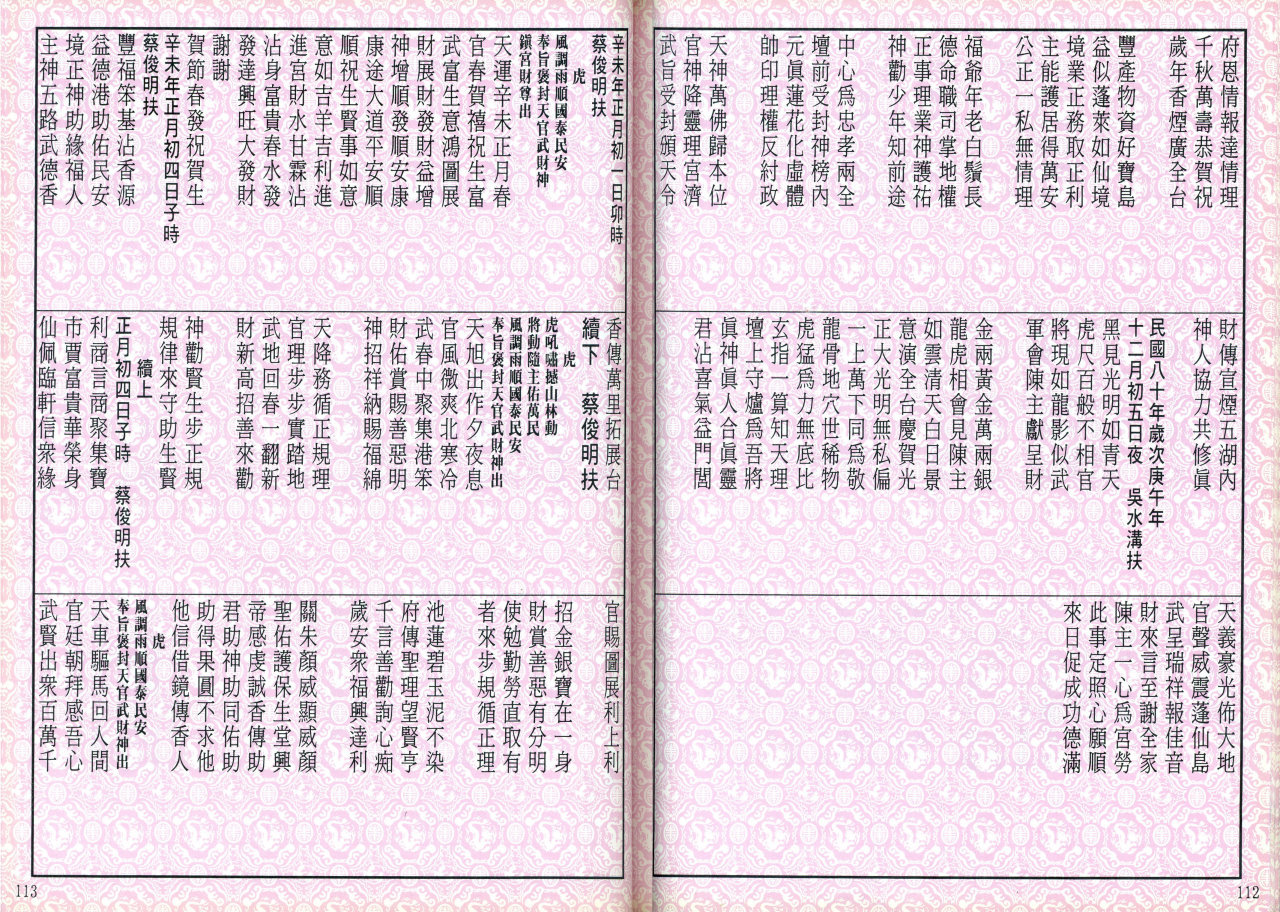 府恩情報達情理
千秋萬壽恭賀祝
歲年香煙廣全台
豐產物資好寶島
益似蓬萊如仙境
境業正務取正利
主能護居得萬安
公正一私無情理
福爺年老白鬚長
德命職司掌地權
正事理業神護祐
神勸少年知前途
中心為忠孝兩全
壇前受封神榜內
元眞蓮花化虛體
帥印理權反紂政
天神萬佛歸本位
官神降靈理宮濟
武旨受封頒天令
財傳宣煙五湖內
神人協力共修眞
民國八十年歲次庚午年
十二月初五日夜　吳水溝扶
黑見光明如青天
虎尺百般不相官
將現如龍影似武
軍會陳主獻呈財
金兩黃金萬兩銀
龍虎相會見陳主
如雲清天白日景
意演全台慶賀光
正大光明無私偏
一上萬下同為敬
龍骨地穴世稀物
虎猛為力無底比
玄指一算知天理
壇上守爐為吾將
眞神眞人合眞靈
君沾喜氣益門閭
天義豪光佈大地
官聲威震蓬仙島
武呈瑞祥報佳音
財來言至謝全家
陳主一心為宮勞
此事定照心願順
來日促成功德滿
112
辛未年正月初一日卯時
蔡俊明扶
虎
風調雨順國泰民安
奉旨褒封天官武財神
鎮宮財尊出
天運辛未正月春
官春賀禧祝生富
武富生意鴻圖展
財展財發財益增
神增順發順安康
康途大道平安順
順祝生賢事如意
意如吉羊吉利進
進宮財水甘霖沾
沾身富貴春水發
發達興旺大發財
謝謝
賀節春發祝賀生
辛未年正月初四日子時
蔡俊明扶
豐福笨基沾香源
益德港助佑民安
境正神助緣福人
主神五路武德香
香傳萬里拓展台
續下　蔡俊明扶
虎
虎吼嘯撼山林動
將動隨主佑萬民
風調雨順國泰民安
奉旨褒封天官武財神出
天旭出作夕夜息
官風微爽北寒冷
武春中聚集港笨
財佑賞賜善惡明
神招祥納賜福綿
天降務循正規理
官理步步實踏地
武地回春一翻新
財新高招善來勸
神勸賢生步正規
規律來守助生賢
續上
正月初四日子時　蔡俊明扶
利商言言商聚集寶
市賈富貴華榮身
仙佩臨軒信衆緣
官賜圖展利上利
招金銀寶在一身
財賞善惡有分明
使勉勤勞直取有
者來步規循正理
池蓮碧玉泥不染
府傳聖理望賢亨
千言善勸詢心痴
歲安衆福興達利
關朱顏威顯威顏
聖佑護保生堂興
帝感虔誠香傳助
君助神助同佑助
助得果圓不求他
他信借鏡傳香人
虎
風調雨順國泰民安
奉旨褒封天官武財神出
天車驅馬回人間
官廷朝拜感吾心
武賢出衆百萬千
113